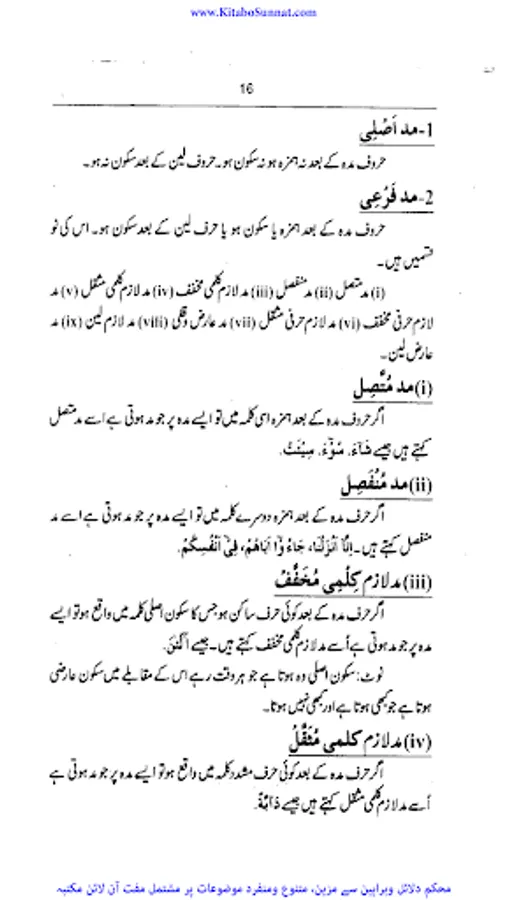 www.KitaboSunnat.com
16
1-مد اَصْلِی
حروف مدہ کے بعد نہ ہمزہ ہو نہ سکون ہو۔ حروف لین کے بعد سکون نہ ہو۔
2-مد فَرْعِی
حروف مدہ کے بعد ہمزہ یا سکون ہو یا حرف لین کے بعد سکون ہو۔ اس کی نو
قسمیں ہیں۔
(i) مد متصل (ii) مد منفصل (iii) مد لازم کلمی مخفف (iv) مد لازم کلمی مثقل (v) مد
لازم حرفی مخفف (vi) مد لازم حرفی مثقل (vii) مد عارض وقفی (viii) مد لازم لین (ix) مد
عارض لین۔
(i)مد مُتَّصِل
اگر حروف مدہ کے بعد ہمزہ اسی کلمہ میں تو ایسے مدہ پر جو مد ہوتی ہے اسے مد متصل
کہتے ہیں جیسے شَآءَ، سُوْٓءَ، سِیْئَتْ.
(ii)مد مُنْفَصِل
اگر حرف مدہ کے بعد ہمزہ دوسرے کلمہ میں تو ایسے مدہ پر جو مد ہوتی ہے اسے مد
منفصل کہتے ہیں۔ اِنَّآ اَنْزَلْنَا، جَاءُ وْٓا اَبَاهُمْ، فِیْٓ اَنْفُسِکُمْ.
(iii)مد لازم کِلْمِی مُخَفَّفْ
اگر حرف مدہ کے بعد کوئی حرف ساکن ہو جس کا سکون اصلی کلمہ میں واقع ہو تو ایسے
مدہ پر جو مد ہوتی ہے اُسے مد لازم کلمی مخفف کہتے ہیں۔ جیسے آلْئٰنَ.
نوٹ: سکون اصلی وہ ہوتا ہے جو ہر وقت رہے اس کے مقابلے میں سکون عارضی
ہوتا ہے جو کبھی ہوتا ہے اور کبھی نہیں ہوتا۔
(iv)مد لازم کلمی مُثَقَّلْ
اگر حرف مدہ کے بعد کوئی حرف مشدد کلمہ میں واقع ہو تو ایسے مدہ پر جو مد ہوتی ہے
اُسے مد لازم کلمی مثقل کہتے ہیں جیسے دَآبَّةً.
محکم دلائل وبراہین سے مزین، متنوع ومنفرد موضوعات پر مشتمل مفت آن لائن مکتبہ